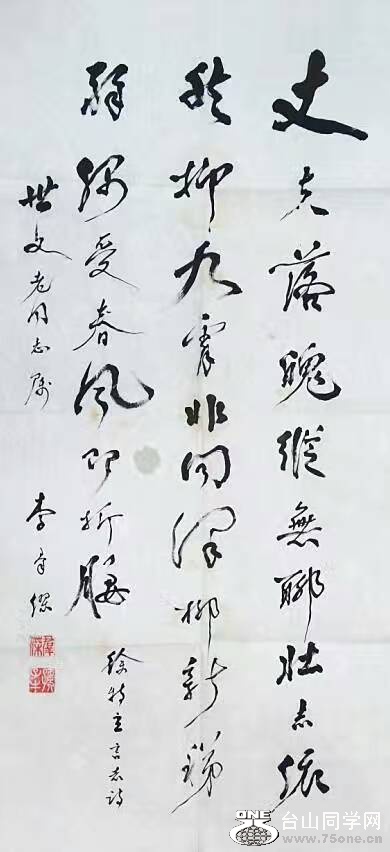 丈夫落魄縱無聊壯志依
然抑九霄非同澤柳新稊
弱偶受春風即折腰
徐特立言志詩
世文老同志屬
李
ONE
台山同学网
www.75one.cn